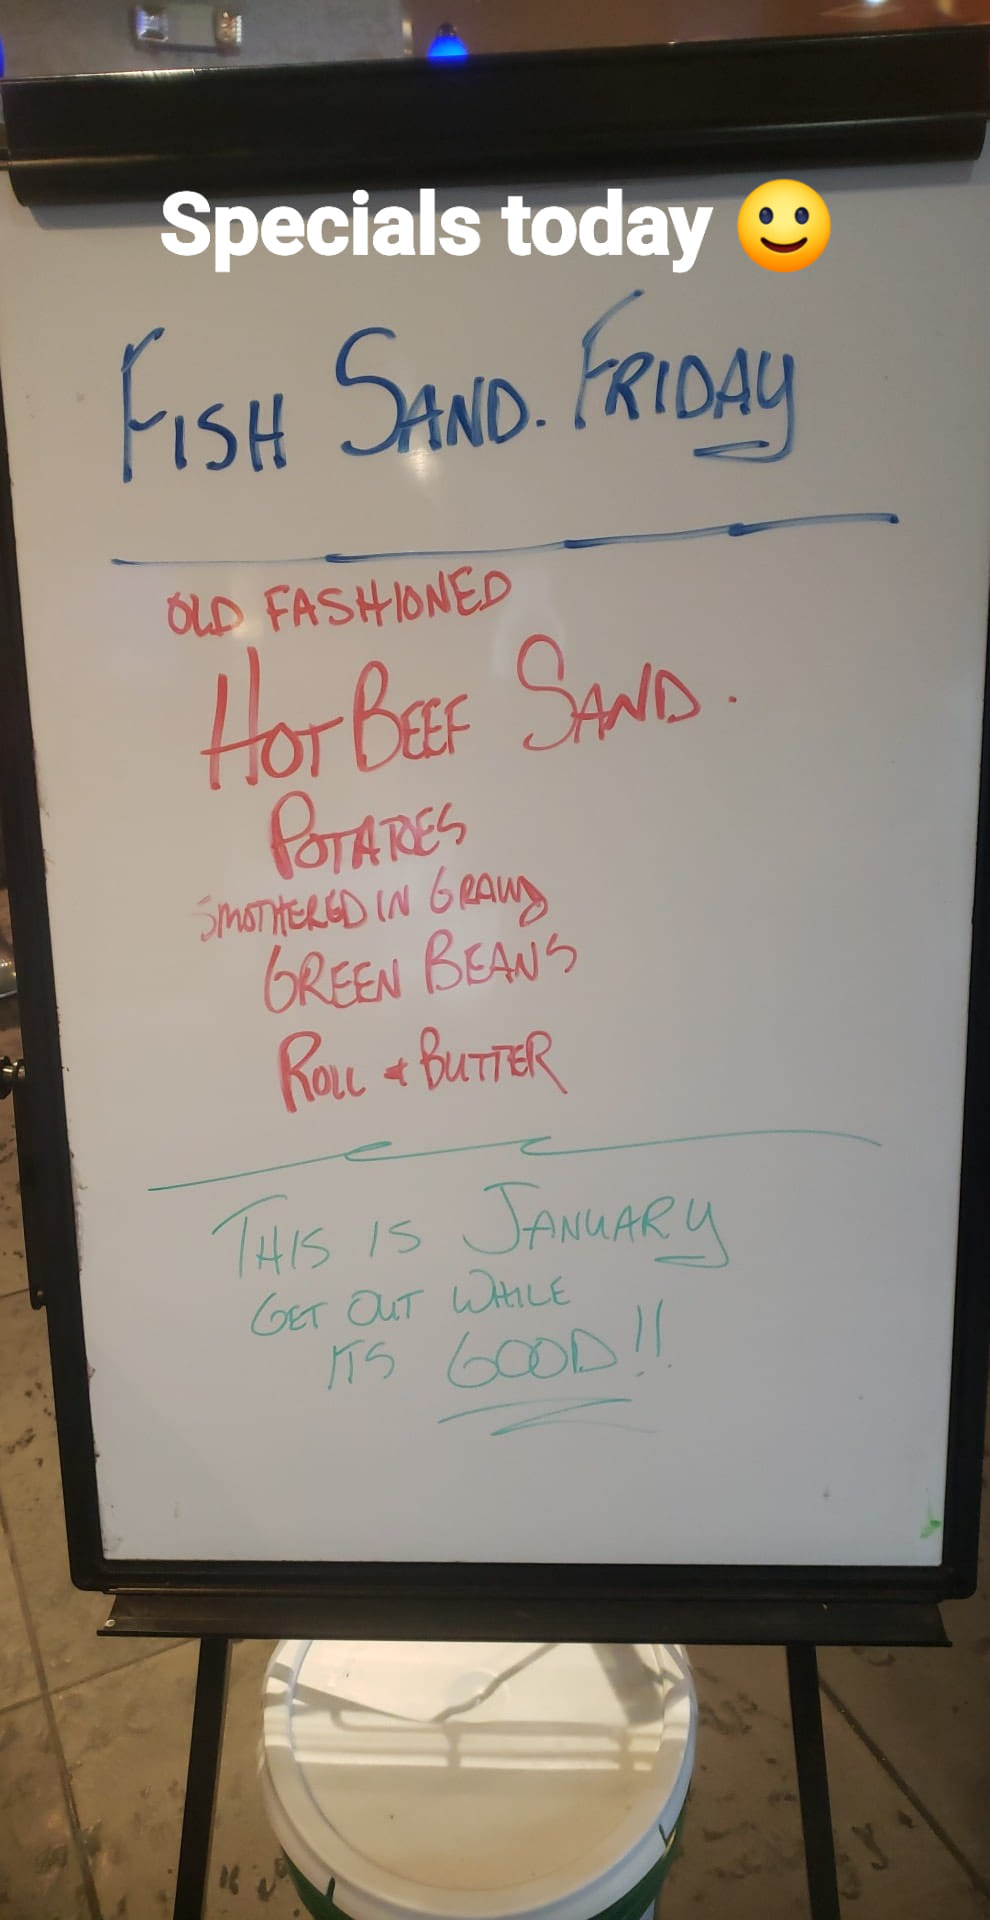 Specials today 🙂
FISH SAND. FRIDAY
OLD FASHIONED
HOT BEEF SAND.
POTATOES
SMOTHERED IN GRAVY
GREEN BEANS
ROLL & BUTTER
THIS IS JANUARY
GET OUT WHILE
ITS GOOD!!